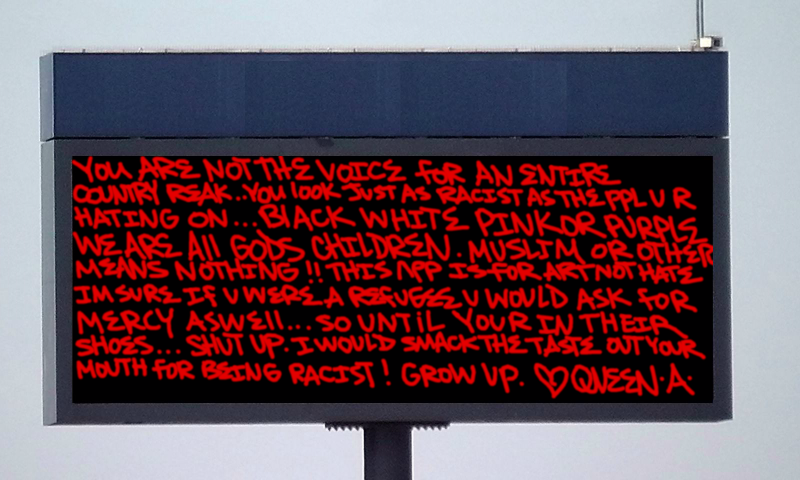 YOU ARE NOT THE VOICE FOR AN ENTIRE
COUNTRY REAK..YOU LOOK JUST AS RACIST AS THE PPL U R
HATING ON...BLACK WHITE PINK OR PURPLE
WE ARE All GODS CHILDREN. MUSLIM OR OTHER
MEANS NOTHING!! THIS APP IS FOR ART NOT HATE
IM SURE IF U WERE A REFUGEE U WOULD ASK FOR
MERCY ASWEll... SO UNTIL YOUR IN THEIR
SHOES... SHUT UP. I WOULD SMACK THE TASTE OUT YOUR
MOUTH FOR BEING RACIST! GROW UP. ♡QUEEN.A.